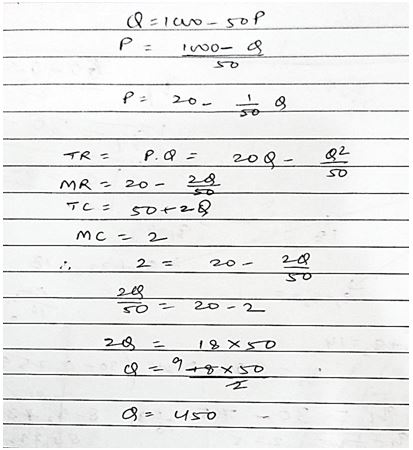 Q = 1000 - 50P
P = 1000 - Q / 50
P = 20 - 1/50 Q
TR = P.Q = 20Q - Q²/50
MR = 20 - 2Q/50
TC = 50 + 2Q
MC = 2
∴ 2 = 20 - 2Q/50
2Q/50 = 20 - 2
2Q = 18 × 50
Q = 9 18 × 50 / 2
Q = 450